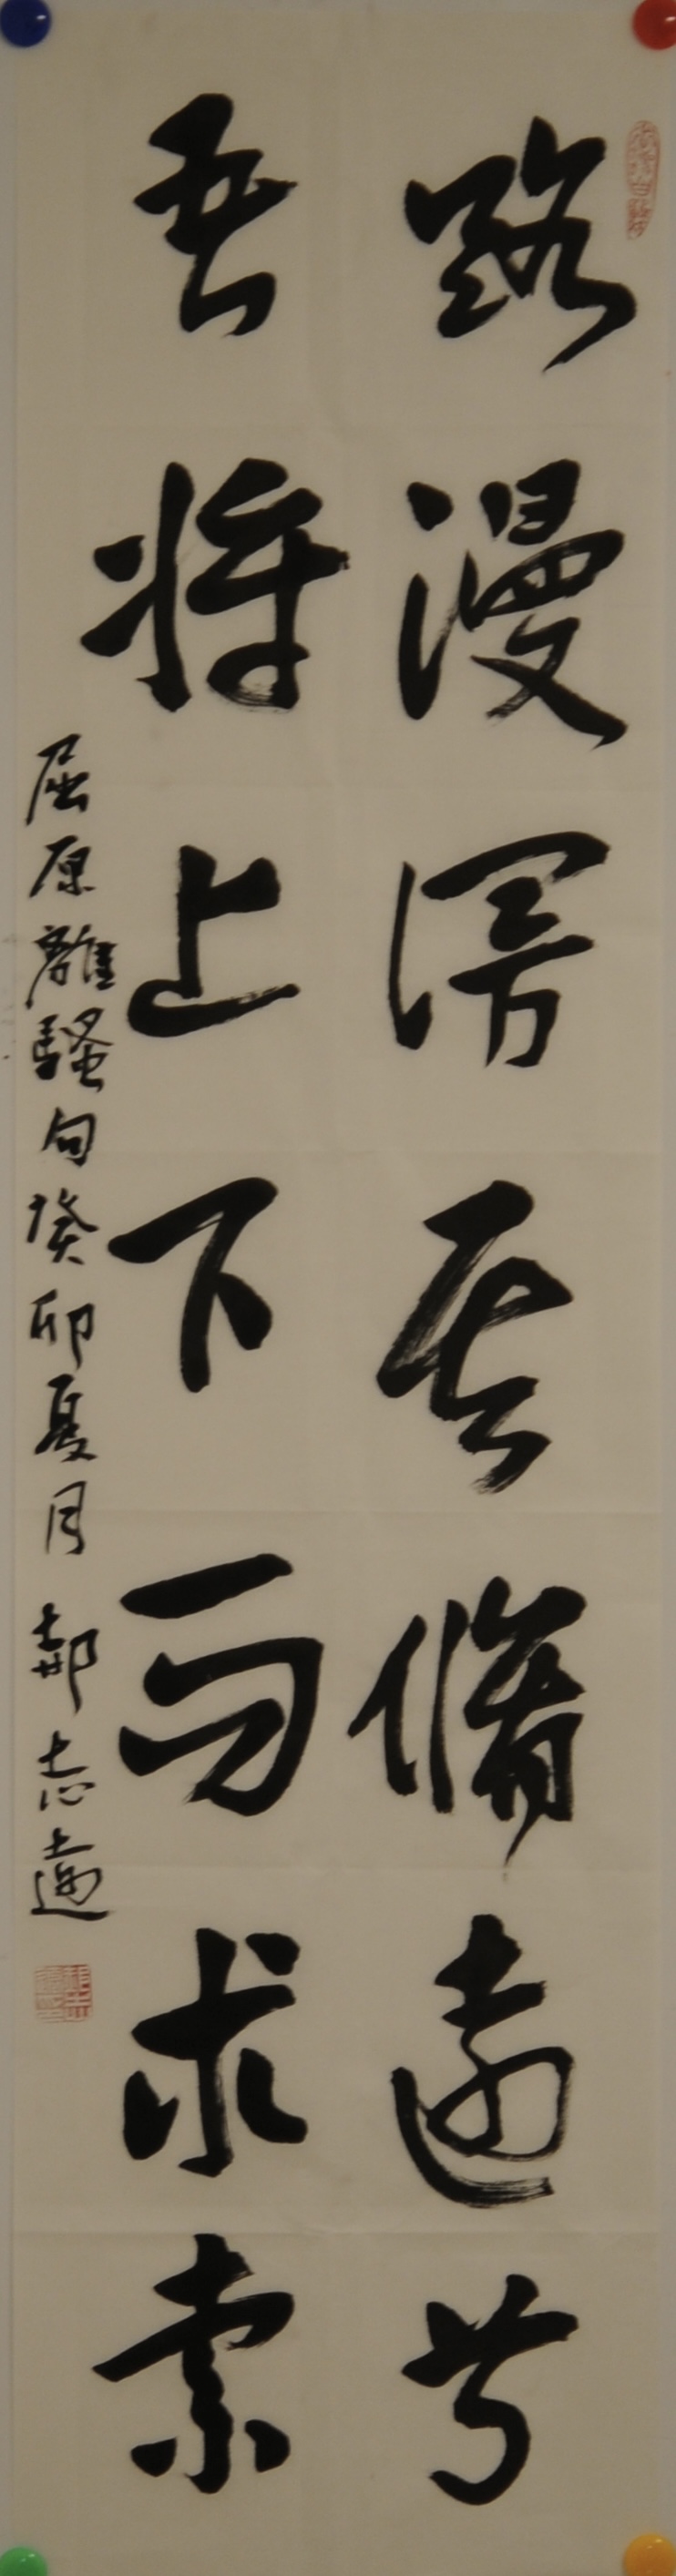 路漫漫其脩遠兮
吾将上下而求索
屈原離騷句癸卯夏月 郝志遠